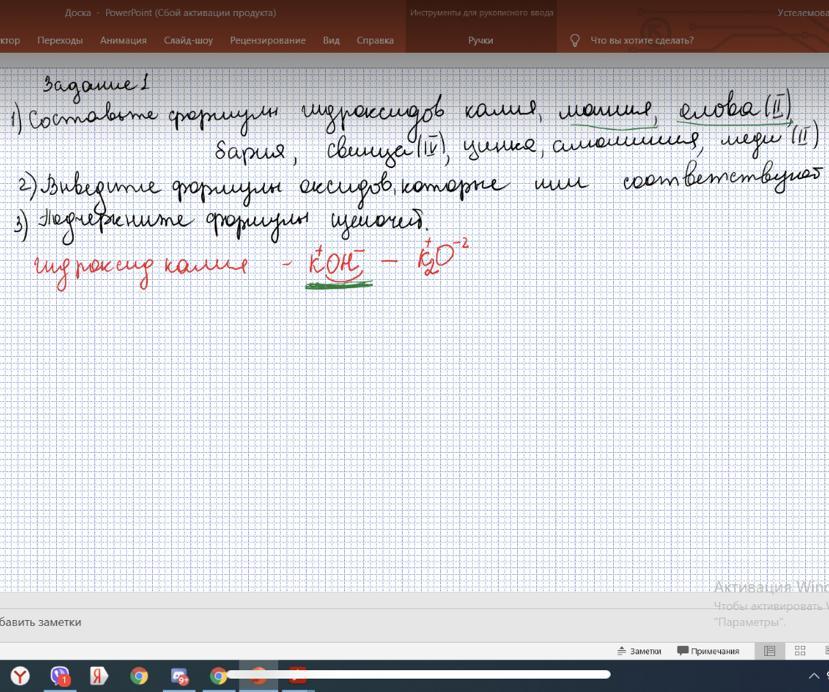 Доска - PowerPoint (Сбой активации продукта)
Инструменты для рукописного ввода
Устелемова
ктор Переходы Анимация Слайд-шоу Рецензирование Вид Справка Ручки Что вы хотите сделать?
Задание 1
1) Составьте формулы гидроксидов калия, магния, олова (II),
бария, свинца (IV), цинка, алюминия, меди (II)
2) Выведите формулы оксидов, которые им соответствуют
3) Подчеркните формулы щелочей.
гидроксид калия - K⁺OH⁻ - K₂⁺O⁻²
Активация Wind
Чтобы активировать W
"Параметры".
бавить заметки
Заметки Примечания